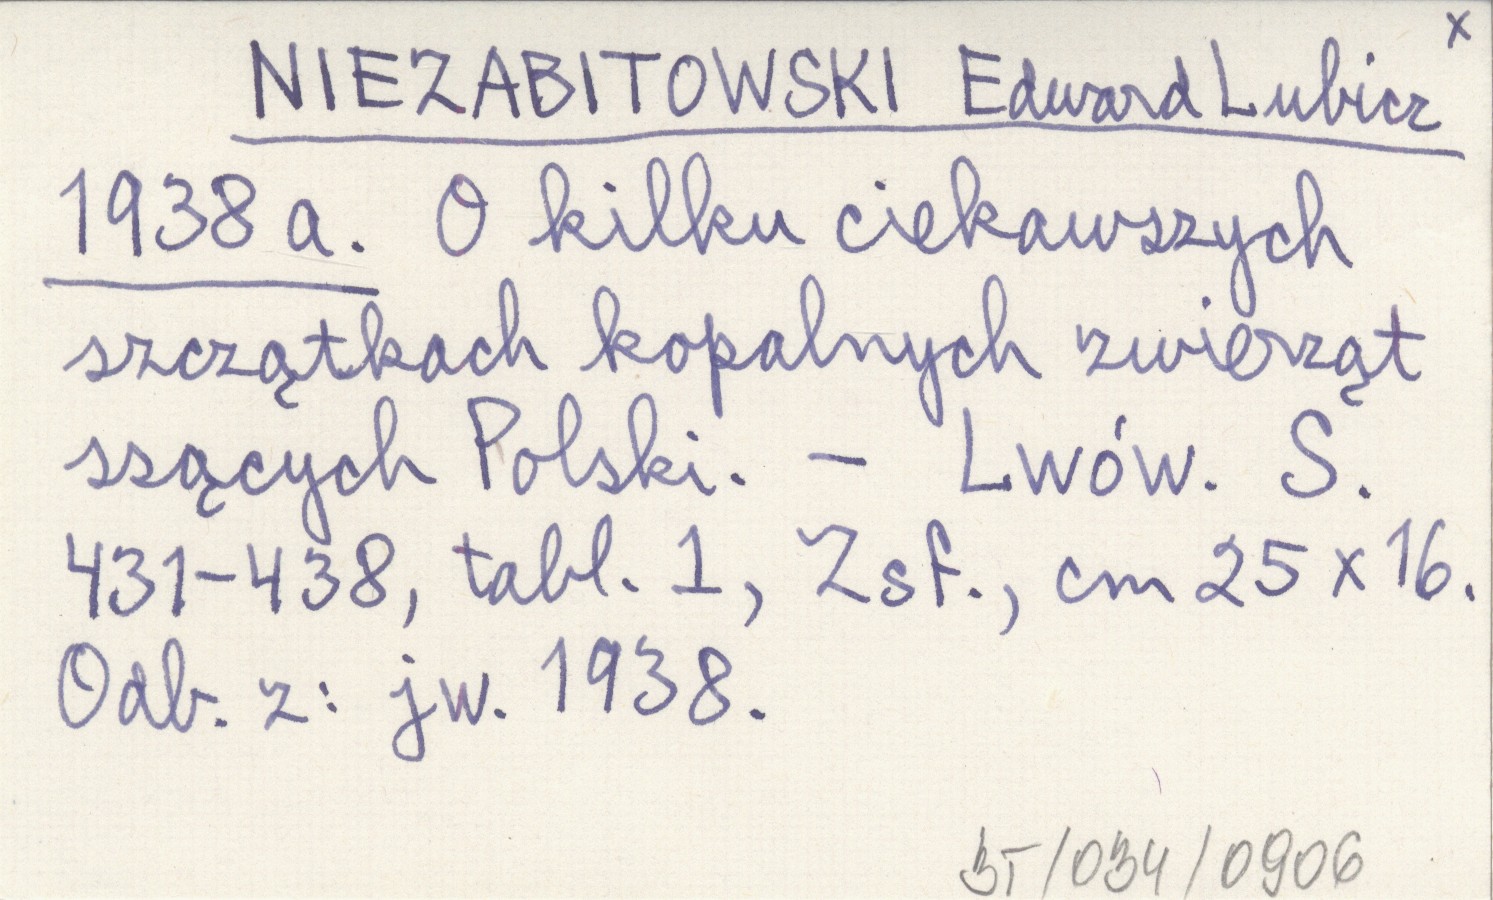 x
NIEZABITOWSKI Edward Lubicz
1938 a. O kilku ciekawszych
szczątkach kopalnych zwierząt
ssących Polski. – Lwów. S.
431–438, tabl. 1, Zsf., cm 25 x 16.
Odb. z: jw. 1938.
/034/0906